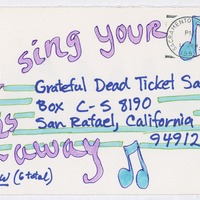 sing your
SACRAMENTO
Grateful Dead Ticket Sa
Box C-S 8190
San Rafael, California
94912
away
(6 total)